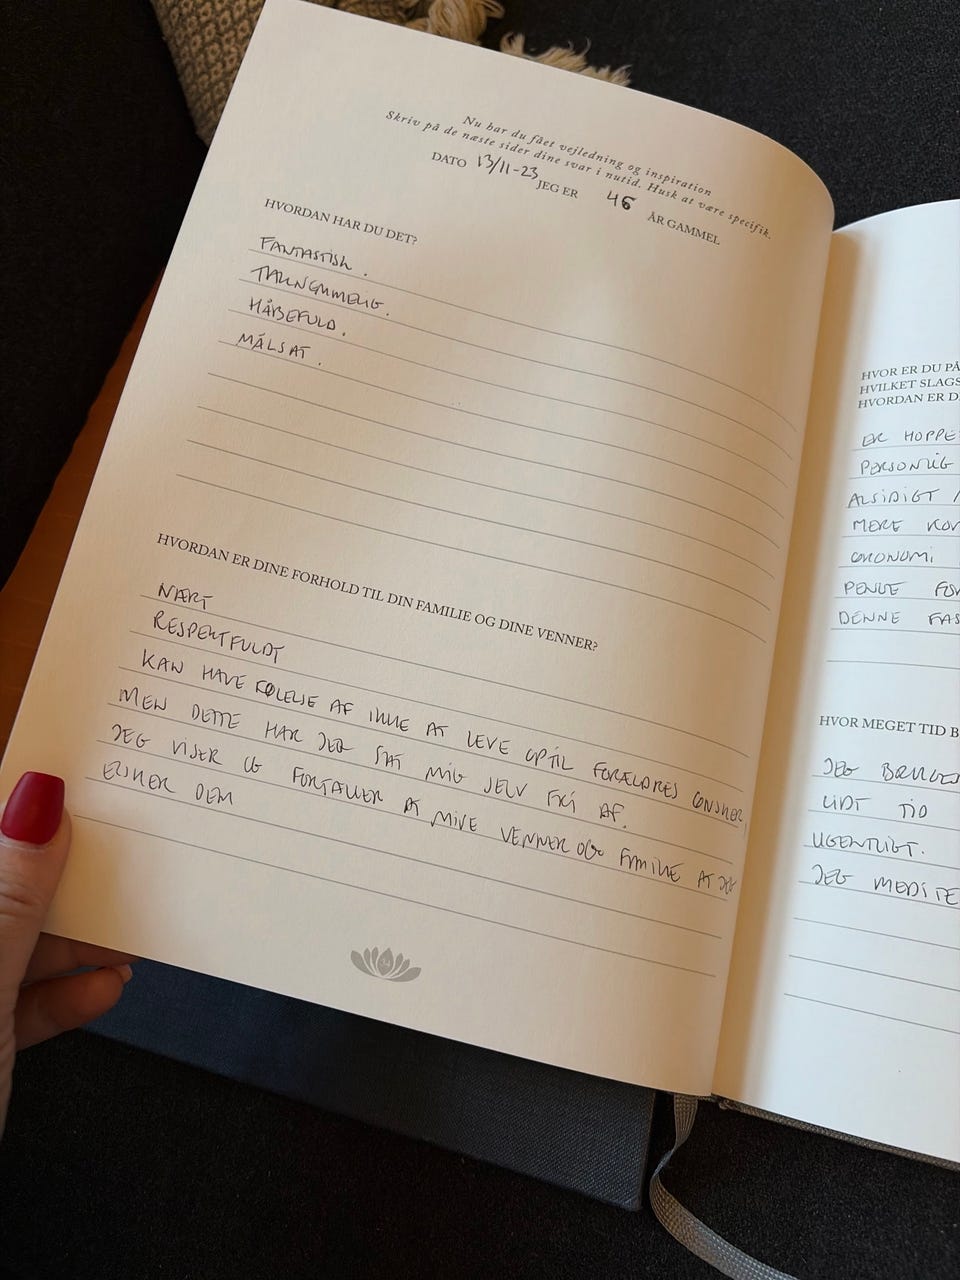 Nu har du fået vejledning og inspiration
Skriv på de næste sider dine svar i nutid. Husk at være specifik.
DATO 13/11-23 JEG ER 46 ÅR GAMMEL
HVORDAN HAR DU DET?
FANTASTISK.
TAKNEMMELIG.
HÅBEFULD.
MÅLSAT.
HVORDAN ER DINE FORHOLD TIL DIN FAMILIE OG DINE VENNER?
NÆRT
RESPEKTFULDT
KAN HAVE FØLELSE AF IKKE AT LEVE OPTIL FORÆLDRES ØNSKER,
MEN DETTE HAR JEG SAT MIG SELV FRI AF.
JEG VISER OG FORTÆLLER AT MINE VENNER OG FAMILIE AT JEG
ELSKER DEM
34
HVOR ER DU PÅ
HVILKET SLAGS
HVORDAN ER D
ER HOPPE
PERSONLIG
ALSIDIGT
MERE KO
ØKONOMI
PENGE FO
DENNE FAS
HVOR MEGET TID B
JEG BRUGE
LIDT TID
UGENTLIGT.
JEG MEDITE